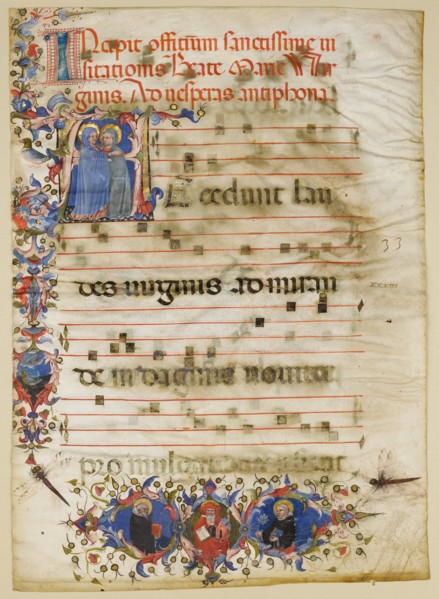 INcipit officium sanctissime ui
sitationis beate Marie Vir
ginis. Ad uesperas antiphona
Accedunt lau
33
des uirginis admiran
xxxiii
de indaginis nouiter